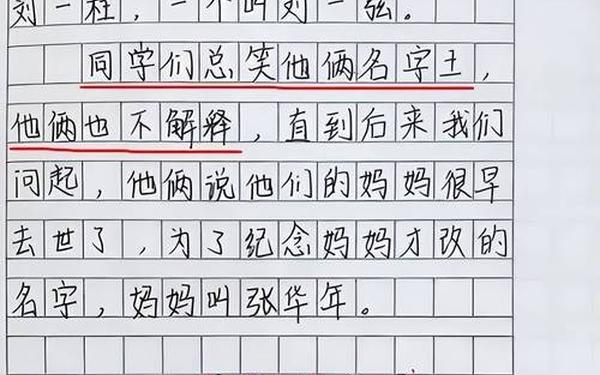 刘一柱，一个叫刘一弦。
同学们总笑他俩名字土，
他俩也不解释，直到后来我们
问起，他俩说他们的妈妈很早
去世了，为了纪念妈妈才改的
名字，妈妈叫张华年。